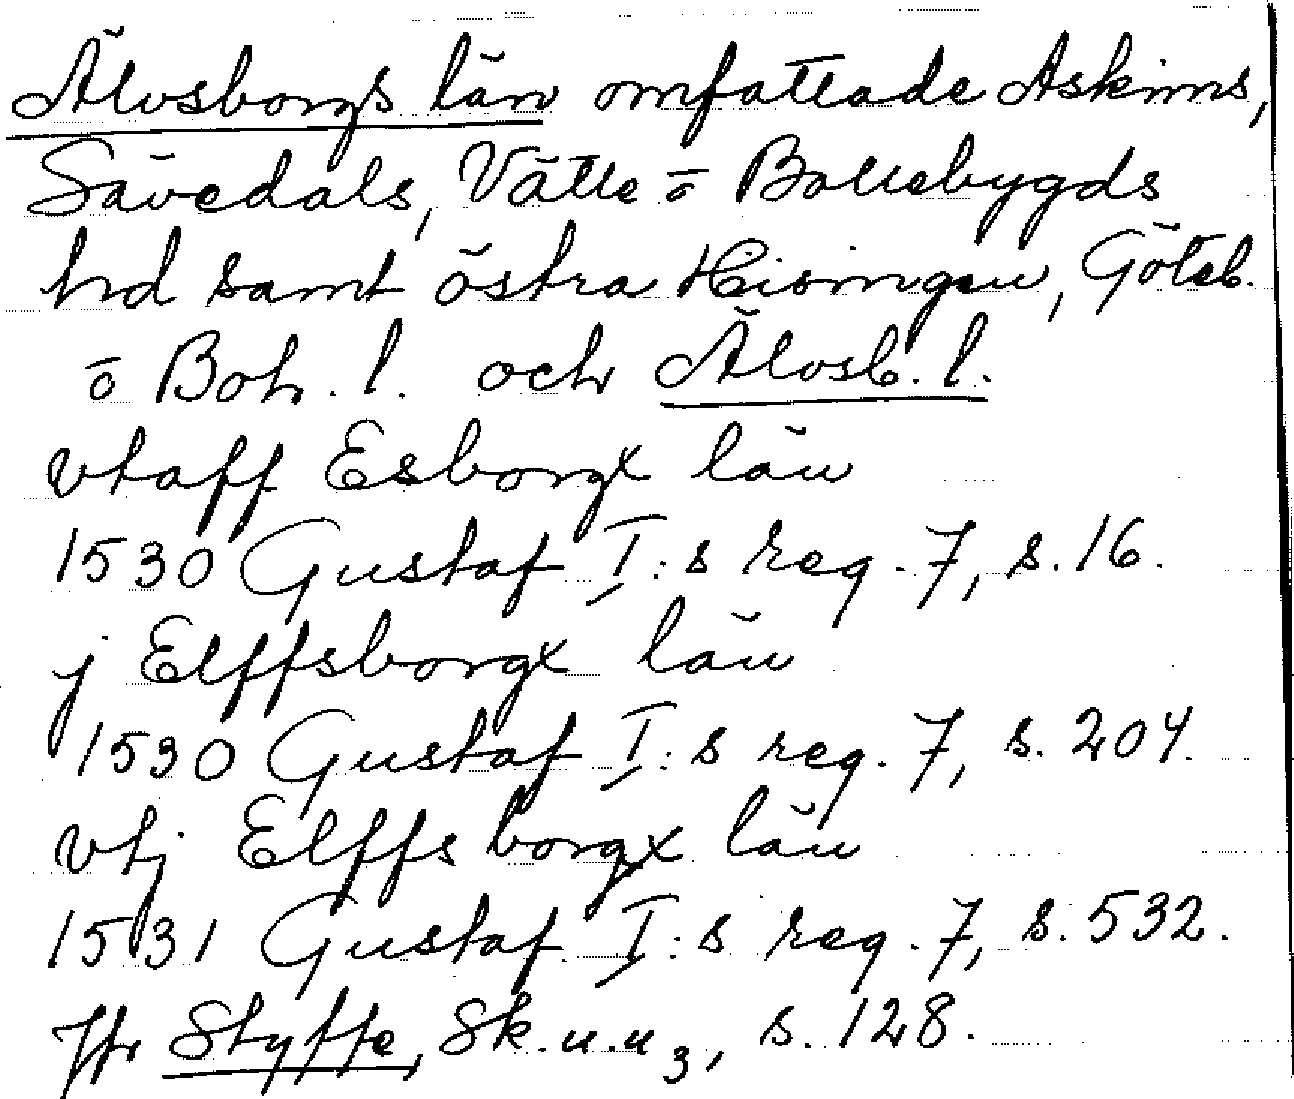 Älvsborgs län omfattade Askims,
Sävedals, Vätte o Bollebygds
hd samt östra Hisingen, Göteb.
o Boh. l. och Älvsb. l.
vtaff Esborgx län
1530 Gustaf I:s reg. 7, s. 16.
j Elffsborgx län
1530 Gustaf I:s reg. 7, s. 204.
vtj Elffsborgx län
1531 Gustaf I:s reg. 7, s. 532.
Jfr Styffe, Sk. u. u 3, s. 128.